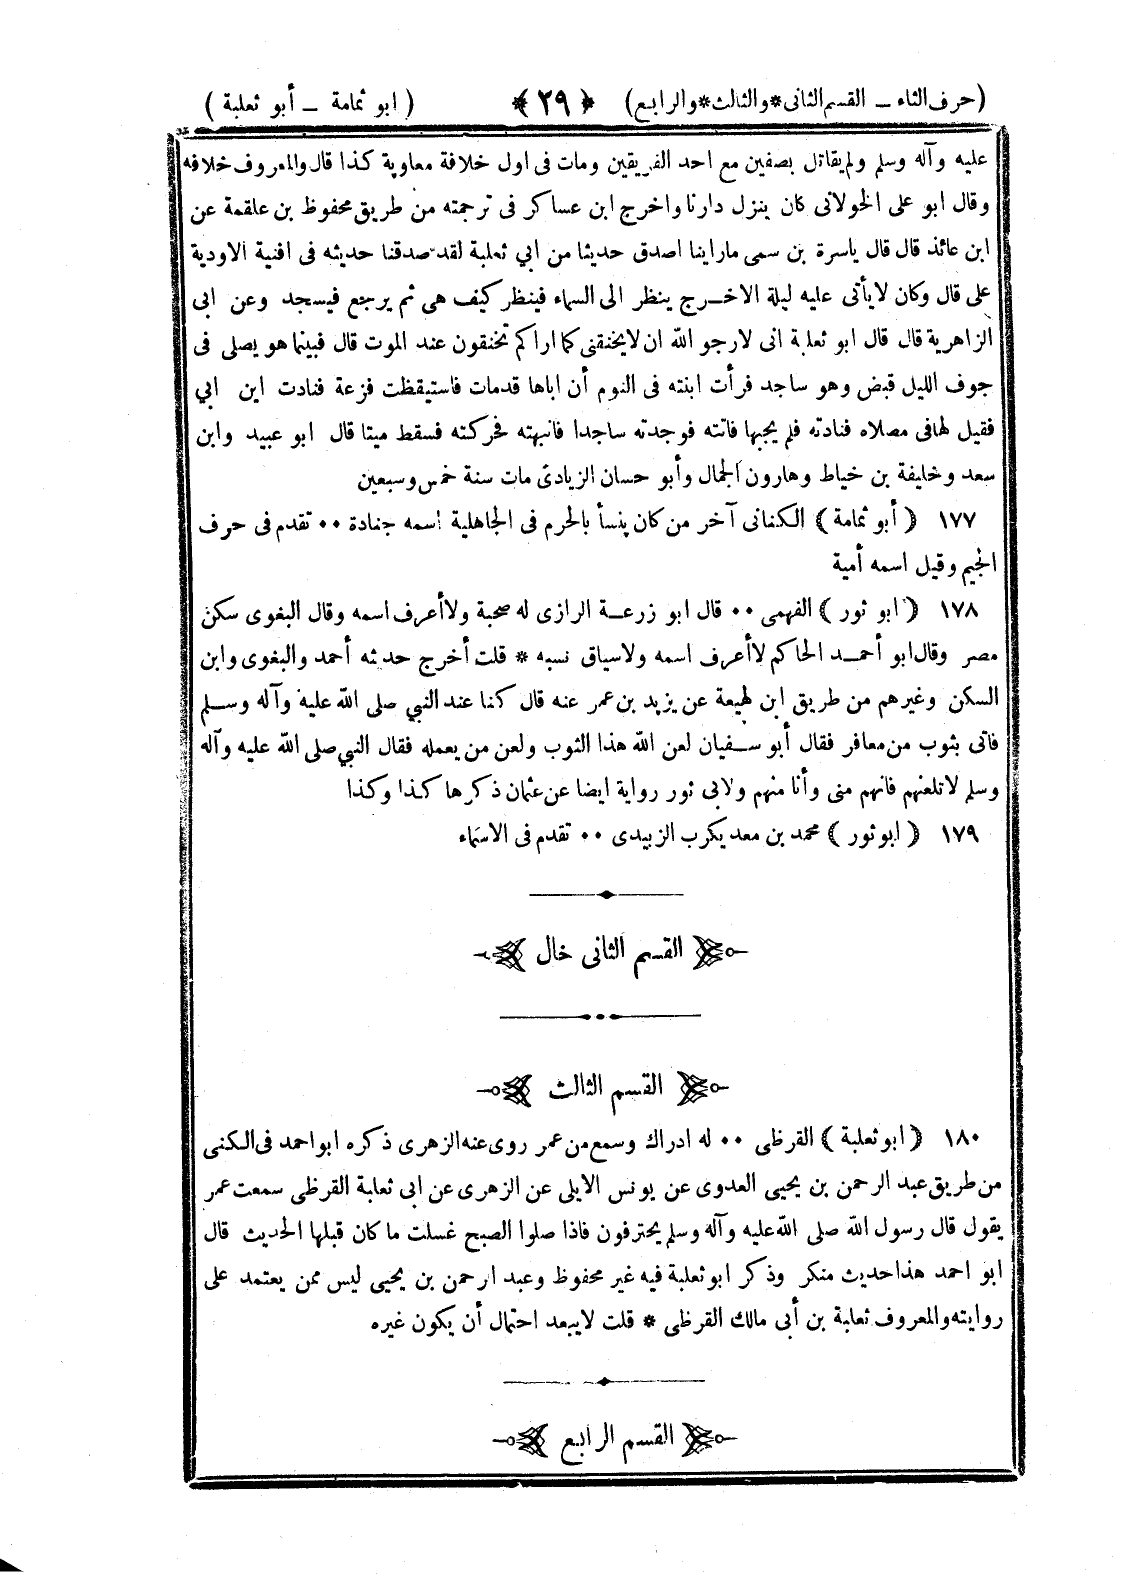 (حرف الثاء – القسم الثانى*والثالث*والرابع) ﴿ ٢٩ ﴾ ( ابو ثمامة – أبو ثعلبة )
عليه وآله وسلم ولم يقاتل بصفين مع احد الفريقين ومات فى اول خلافة معاوية كذا قال والمعروف خلافه
وقال ابو على الخولانى كان ينزل داريا واخرج ابن عساكر فى ترجمته من طريق محفوظ بن علقمة عن
ابن عائذ قال قال ياسرة بن سمى ماراينا اصدق حديثا من ابي ثعلبة لقد صدقنا حديثه فى افنية الاودية
على قال وكان لايأتى عليه ليلة الاخرج ينظر الى السماء فينظر كيف هى ثم يرجع فيسجد وعن ابى
الزاهرية قال قال ابو ثعلبة انى لارجو الله ان لايخنقنى كما اراكم تخنقون عند الموت قال فبينما هو يصلى فى
جوف الليل قبض وهو ساجد فرأت ابنته فى النوم أن اباها قدمات فاستيقظت فزعة فنادت اين ابي
فقيل لهافى مصلاه فنادته فلم يجبها فاتته فوجدته ساجدا فانبهته فحركته فسقط ميتا قال ابو عبيد وابن
سعد وخليفة بن خياط وهارون الجمال وأبو حسان الزيادى مات سنة خمس وسبعين
١٧٧ ( أبو ثمامة ) الكنانى آخر من كان ينسأ بالحرم فى الجاهلية اسمه جنادة ٠٠ تقدم فى حرف
الجيم وقيل اسمه أمية
١٧٨ ( ابو ثور ) الفهمى ٠٠ قال ابو زرعة الرازى له صحبة ولاأعرف اسمه وقال البغوى سكن
مصر وقال ابو أحمد الحاكم لاأعرف اسمه ولاسياق نسبه * قلت أخرج حديثه أحمد والبغوى وابن
السكن وغيرهم من طريق ابن لهيعة عن يزيد بن عمر عنه قال كنا عند النبي صلى الله عليه وآله وسلم
فاتى بثوب من معافر فقال أبو سفيان لعن الله هذا الثوب ولعن من يعمله فقال النبي صلى الله عليه وآله
وسلم لاتلعنهم فانهم منى وأنا منهم ولابى ثور رواية ايضا عن عثمان ذكرها كذا وكذا
١٧٩ ( ابو ثور ) محمد بن معد يكرب الزبيدى ٠٠ تقدم فى الاسماء
القسم الثانى خال
القسم الثالث
١٨٠ ( ابو ثعلبة ) القرظى ٠٠ له ادراك وسمع من عمر روى عنه الزهرى ذكره ابو احمد فى الكنى
من طريق عبد الرحمن بن يحيى العدوى عن يونس الايلى عن الزهرى عن ابى ثعلبة القرظى سمعت عمر
يقول قال رسول الله صلى الله عليه وآله وسلم يحترفون فاذا صلوا الصبح غسلت ما كان قبلها الحديث قال
ابو احمد هذا حديث منكر وذكر ابو ثعلبة فيه غير محفوظ وعبد ارحمن بن يحيى ليس ممن يعتمد على
روايته والمعروف ثعلبة بن أبى مالك القرظى * قلت لايبعد احتمال أن يكون غيره
القسم الرابع